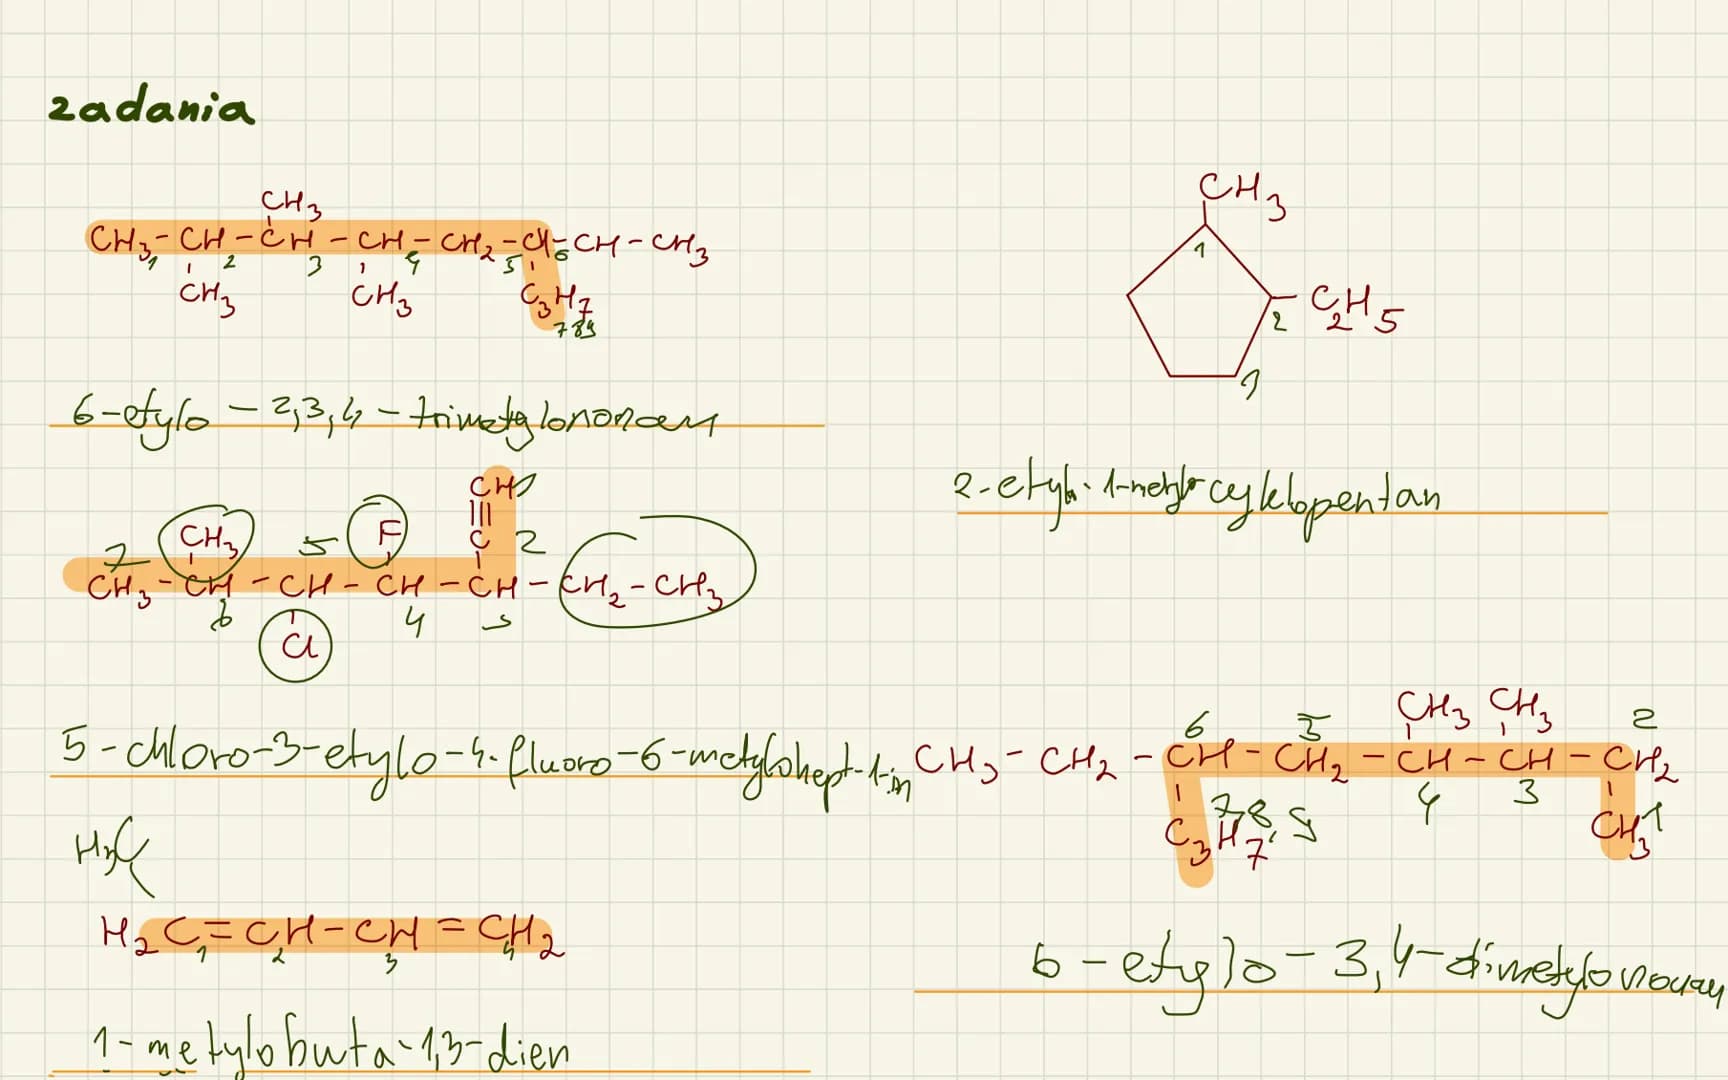 zadania
CH3
CH3 - CH - CH - CH - CH2 - CH - CH - CH3
1 2 3 4 5 6
CH3 CH3 C3H7
7 8 9
6-etylo - 2,3,4 - trimetylononan
CH3
1
2 - C2H5
3
2-etylo-1-metylocyklopentan
CH 1
|||
7 CH3 5 F C 2
CH3 - CH - CH - CH - CH - CH2 - CH3
6 4 3
Cl
5-chloro-3-etylo-4-fluoro-6-metylohept-1-in
6 5 CH3 CH3 2
CH3 - CH2 - CH - CH2 - CH - CH - CH2
7,8,9 4 3
C3H7 CH3 1
6-etylo-3,4-dimetylononan
H3C
H2C = CH - CH = CH2
1 2 3 4
1-metylobuta-1,3-dien